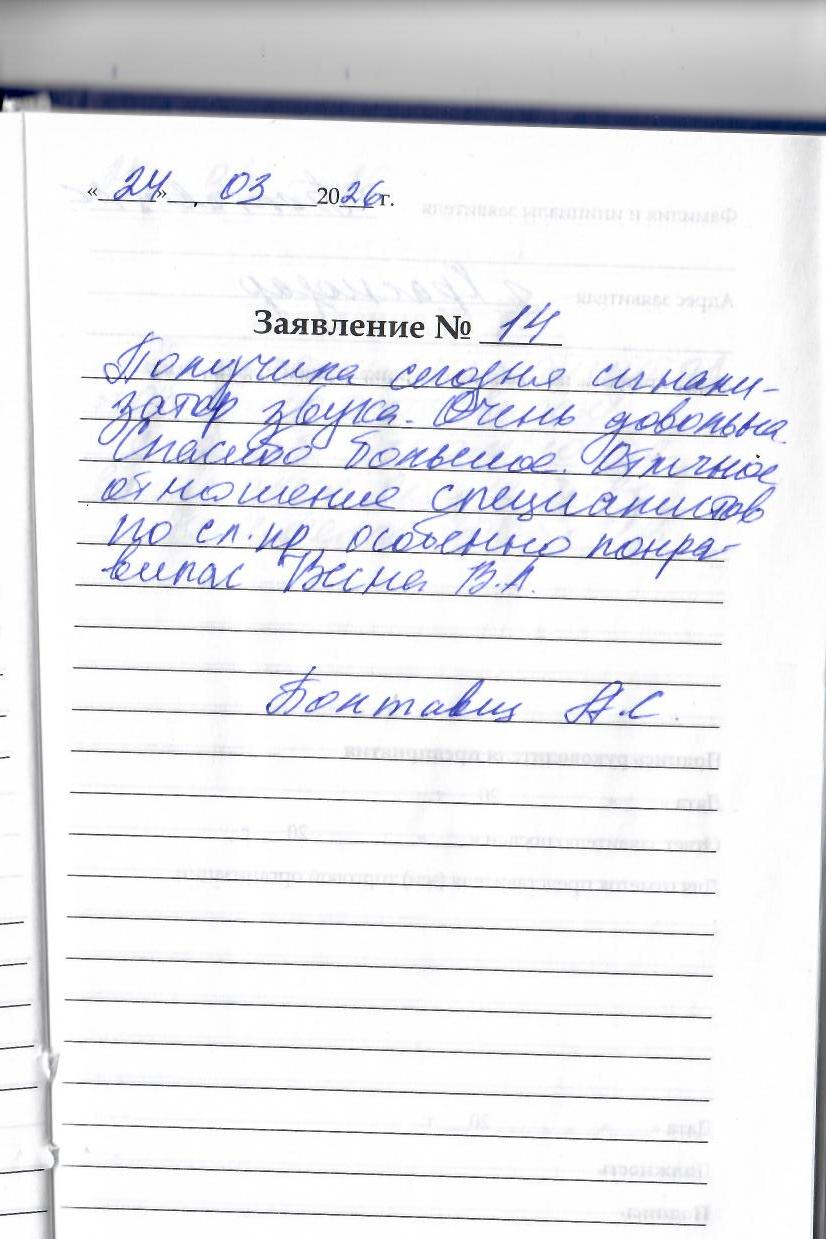 «24» , 03 2026 г.
Заявление № 14
Получила сегодня сигнали-
затор звука. Очень довольна.
Спасибо большое. Отличное
отношение специалистов
по сл. пр особенно понра-
вилас Весна В.А.
Бонтавщ А.С.